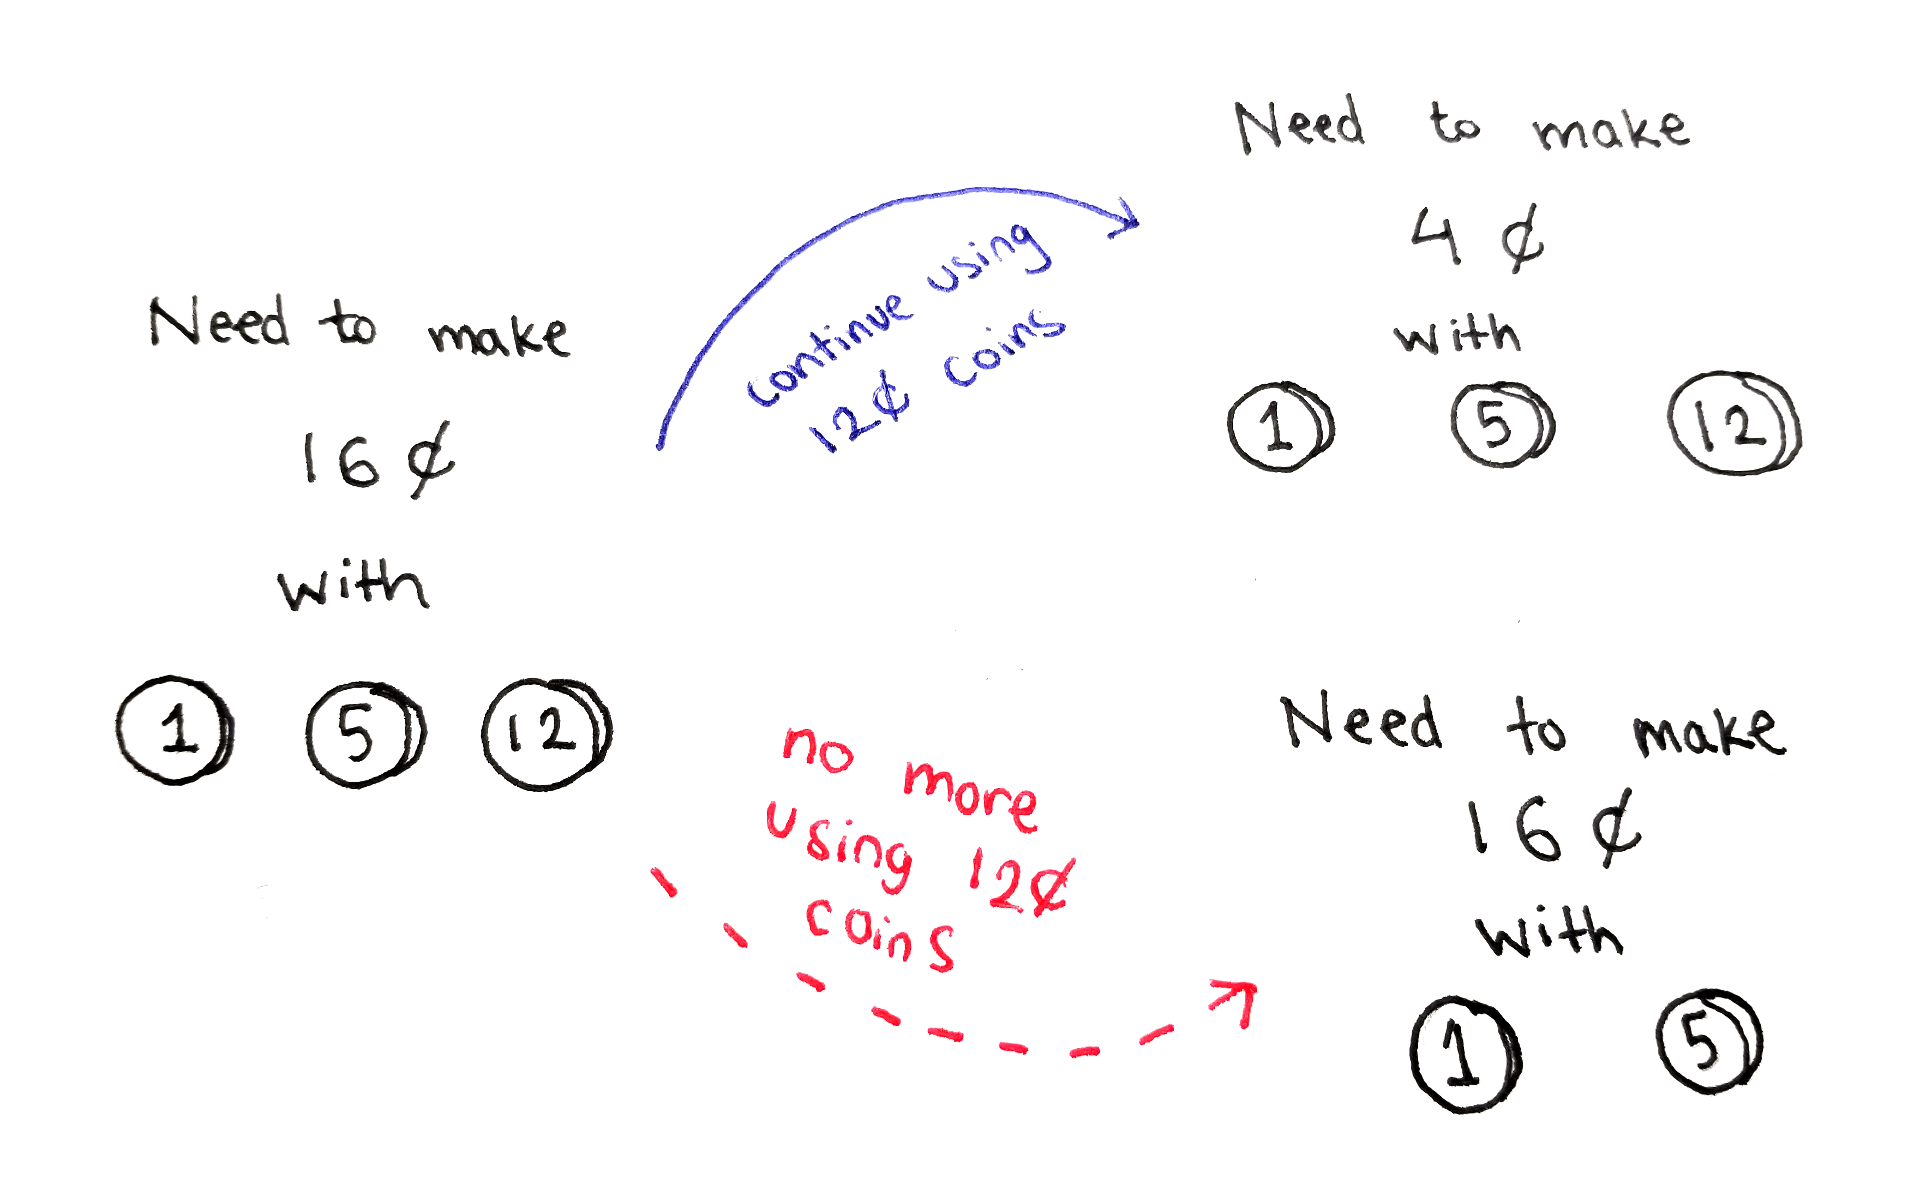 Need to make
16 ¢
with
1 5 12
continue using
12¢ coins
Need to make
4 ¢
with
1 5 12
no more
using 12¢
coins
Need to make
16 ¢
with
1 5